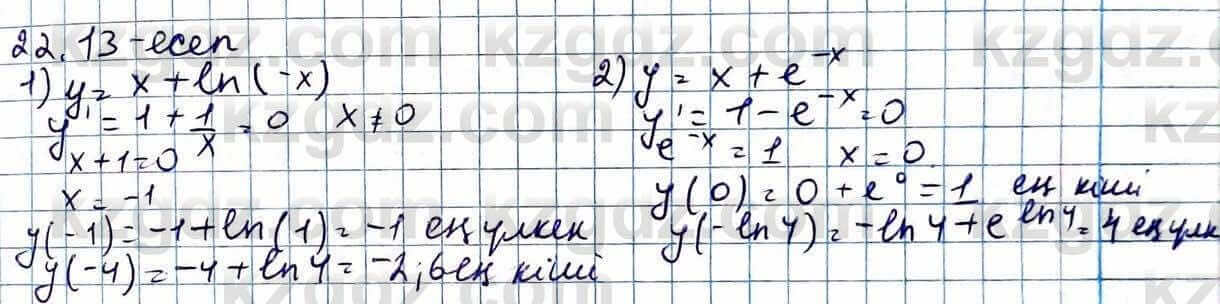 22.13-есеп
1) y = x + ln(-x)
y' = 1 + 1/x = 0   x ≠ 0
x + 1 = 0
x = -1
y(-1) = -1 + ln(1) = -1 ең үлкен
y(-4) = -4 + ln 4 = -2,6 ең кіші
2) y = x + e^{-x}
y' = 1 - e^{-x} = 0
e^{-x} = 1   x = 0.
y(0) = 0 + e^0 = 1 ең кіші
y(-ln 4) = -ln 4 + e^{ln 4} = 4 ең үлк